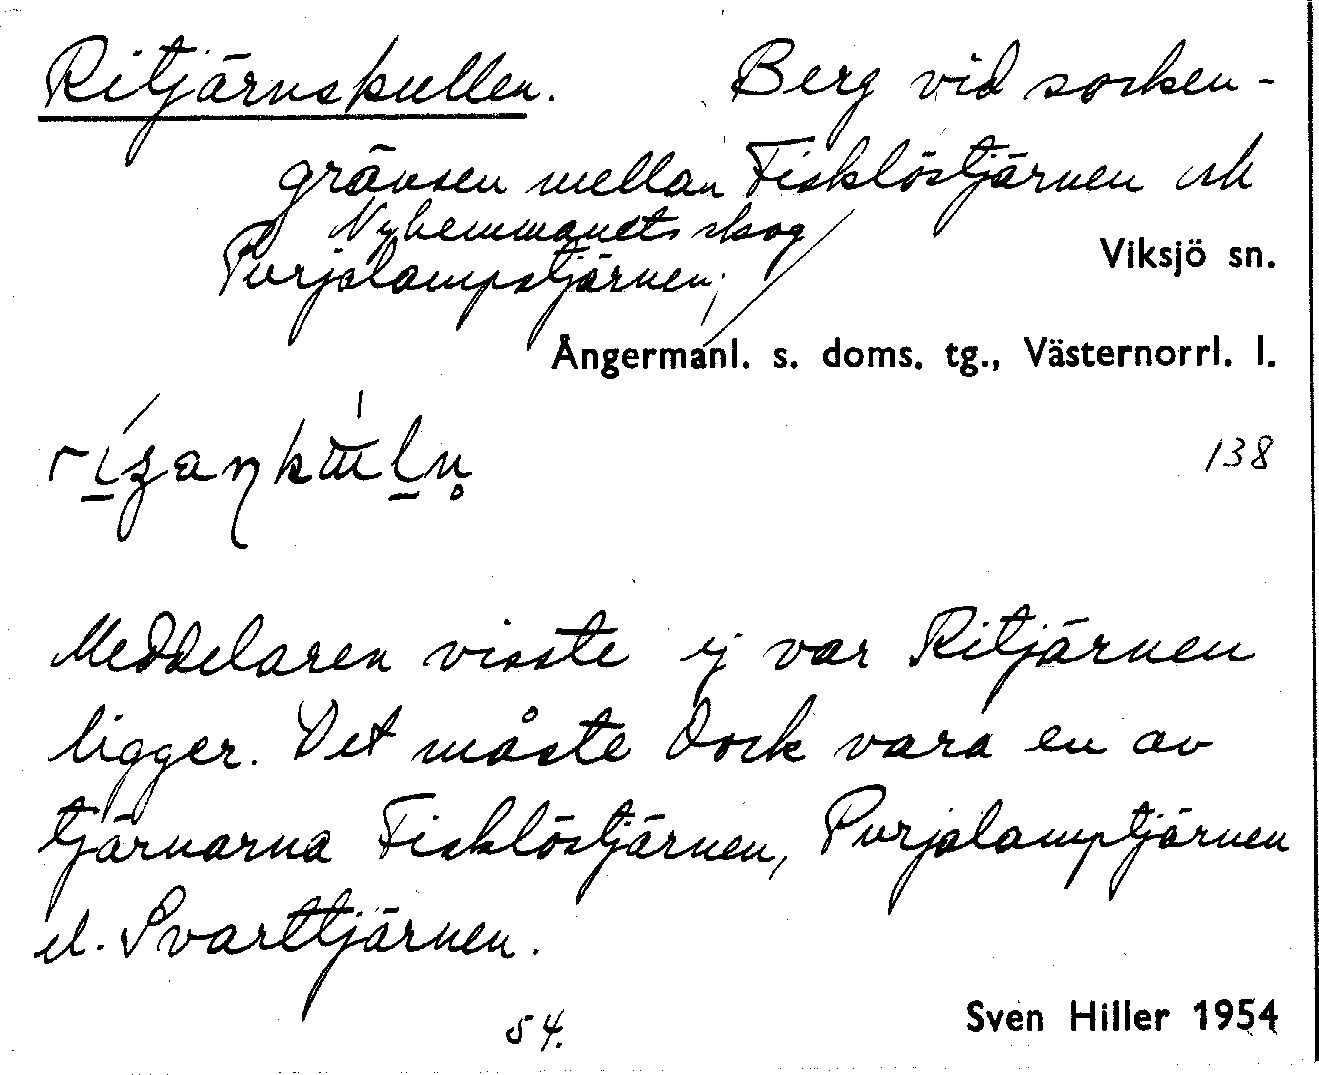 Ritjärnskullen. Berg vid socken-
gränsen mellan Fisklöstjärnen och
Nyhemmanets skog
Purjolampstjärnen,
Viksjö sn.
Ångermanl. s. doms. tg., Västernorrl. l.
138
Meddelaren visste ej var Ritjärnen
ligger. Det måste dock vara en av
tjärnarna Fisklöstjärnen, Purjolamptjärnen
el. Svarttjärnen.
54.
Sven Hiller 1954